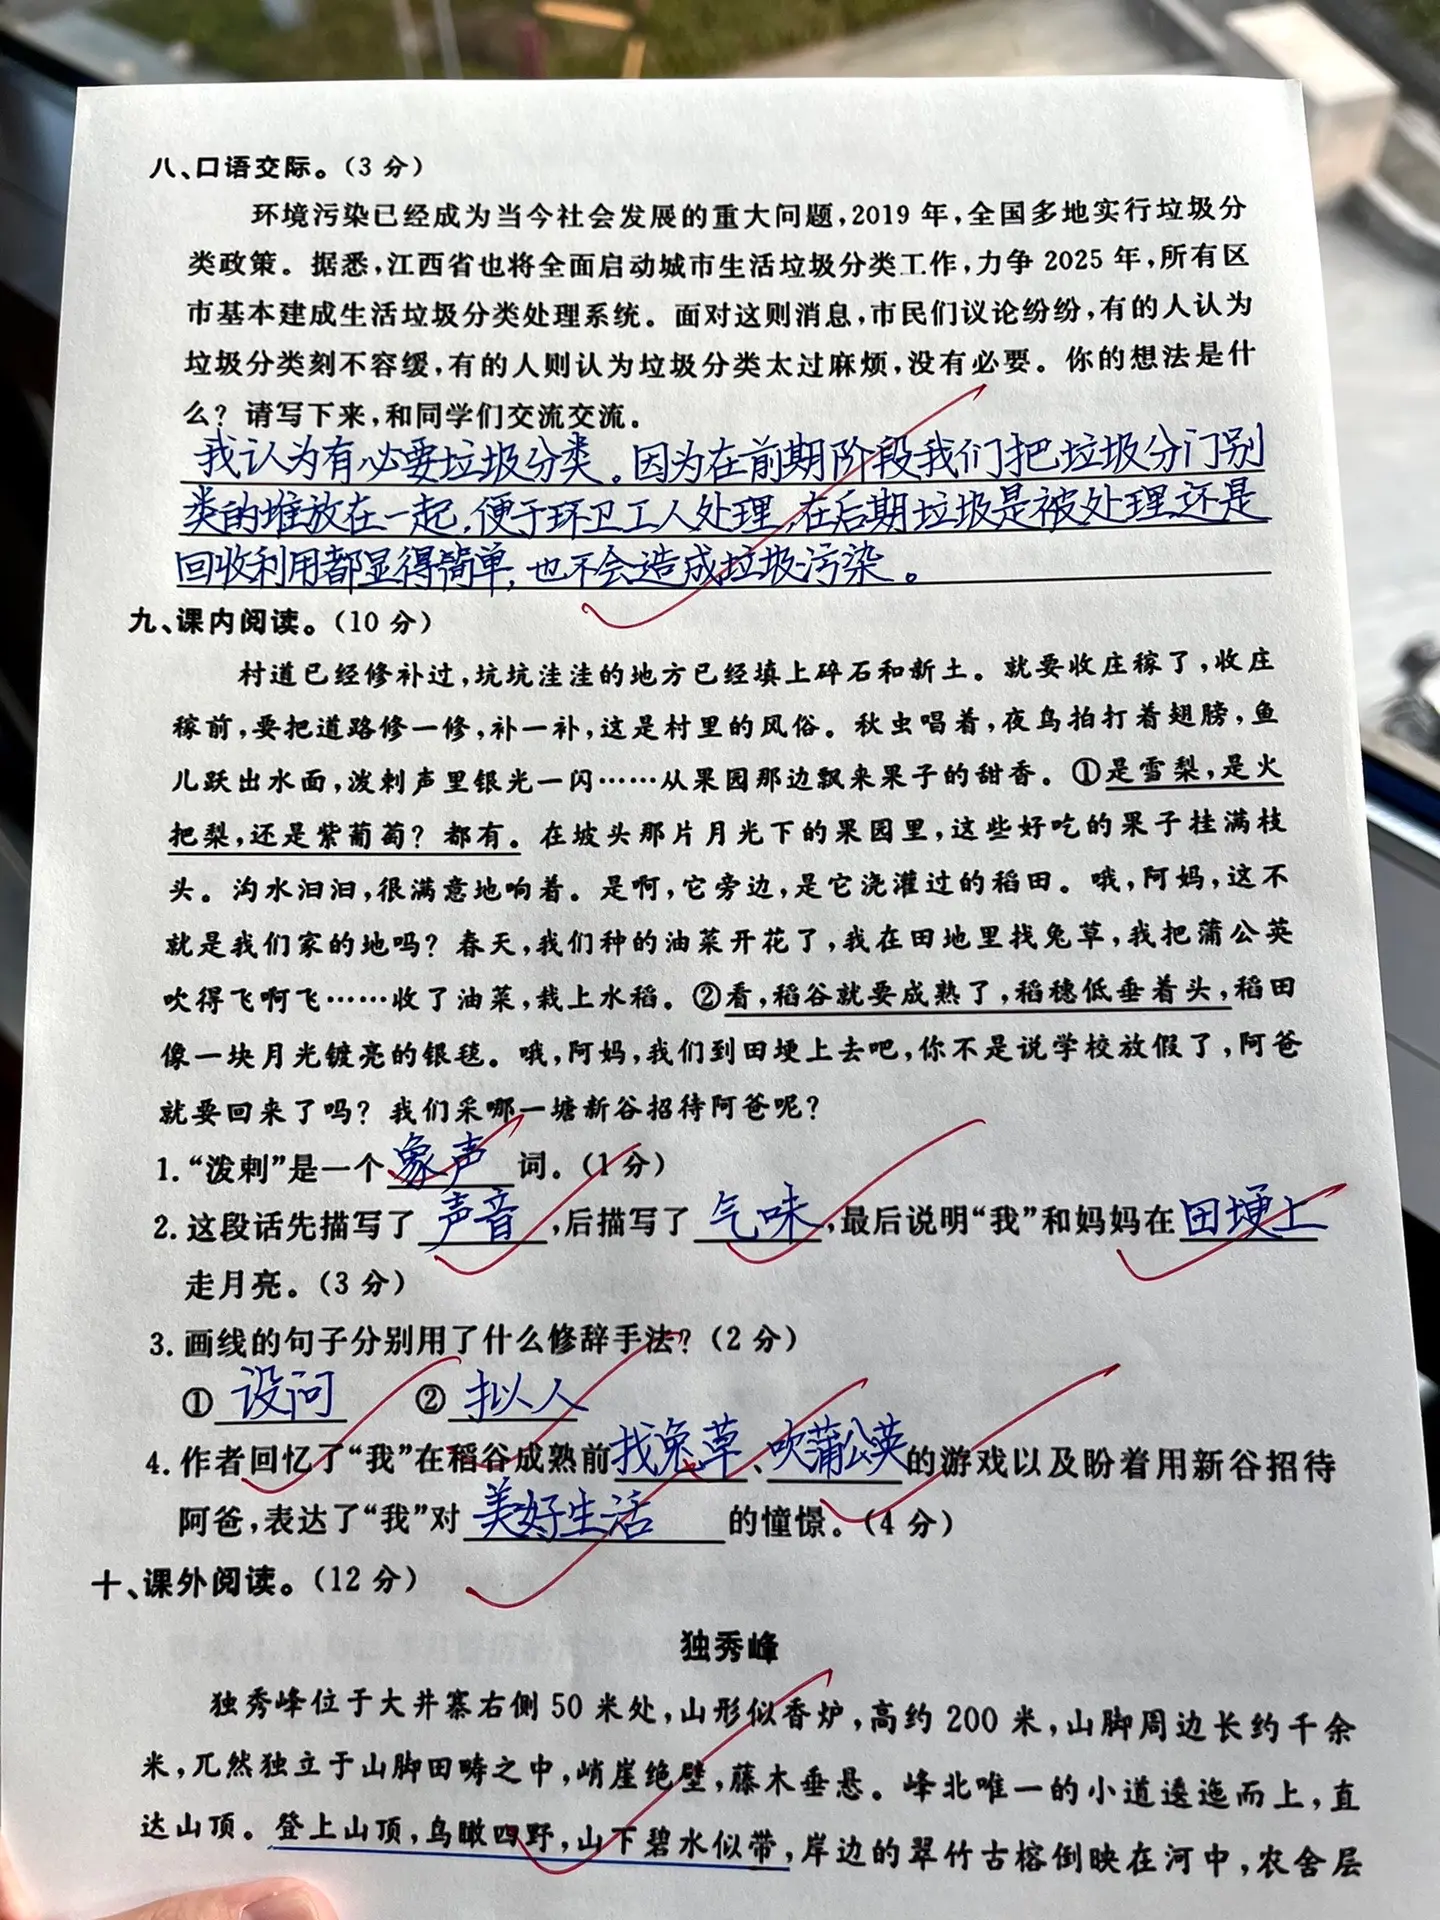 八、口语交际。（3 分）
环境污染已经成为当今社会发展的重大问题，2019 年，全国多地实行垃圾分
类政策。据悉，江西省也将全面启动城市生活垃圾分类工作，力争 2025 年，所有区
市基本建成生活垃圾分类处理系统。面对这则消息，市民们议论纷纷，有的人认为
垃圾分类刻不容缓，有的人则认为垃圾分类太过麻烦，没有必要。你的想法是什
么？请写下来，和同学们交流交流。
我认为有必要垃圾分类。因为在前期阶段我们把垃圾分门别
类的堆放在一起，便于环卫工人处理，在后期垃圾是被处理还是
回收利用都显得简单，也不会造成垃圾污染。
九、课内阅读。（10 分）
村道已经修补过，坑坑洼洼的地方已经填上碎石和新土。就要收庄稼了，收庄
稼前，要把道路修一修，补一补，这是村里的风俗。秋虫唱着，夜鸟拍打着翅膀，鱼
儿跃出水面，泼剌声里银光一闪……从果园那边飘来果子的甜香。①是雪梨，是火
把梨，还是紫葡萄？都有。在坡头那片月光下的果园里，这些好吃的果子挂满枝
头。沟水汩汩，很满意地响着。是啊，它旁边，是它浇灌过的稻田。哦，阿妈，这不
就是我们家的地吗？春天，我们种的油菜开花了，我在田地里找兔草，我把蒲公英
吹得飞啊飞……收了油菜，栽上水稻。②看，稻谷就要成熟了，稻穗低垂着头，稻田
像一块月光镀亮的银毯。哦，阿妈，我们到田埂上去吧，你不是说学校放假了，阿爸
就要回来了吗？我们采哪一塘新谷招待阿爸呢？
1. “泼剌”是一个象声词。（1 分）
2. 这段话先描写了声音，后描写了气味，最后说明“我”和妈妈在田埂上
走月亮。（3 分）
3. 画线的句子分别用了什么修辞手法？（2 分）
①设问 ②拟人
4. 作者回忆了“我”在稻谷成熟前找兔草、吹蒲公英的游戏以及盼着用新谷招待
阿爸，表达了“我”对美好生活的憧憬。（4 分）
十、课外阅读。（12 分）
独秀峰
独秀峰位于大井寨右侧 50 米处，山形似香炉，高约 200 米，山脚周边长约千余
米，兀然独立于山脚田畴之中，峭崖绝壁，藤木垂悬。峰北唯一的小道逶迤而上，直
达山顶。登上山顶，鸟瞰四野，山下碧水似带，岸边的翠竹古榕倒映在河中，农舍层